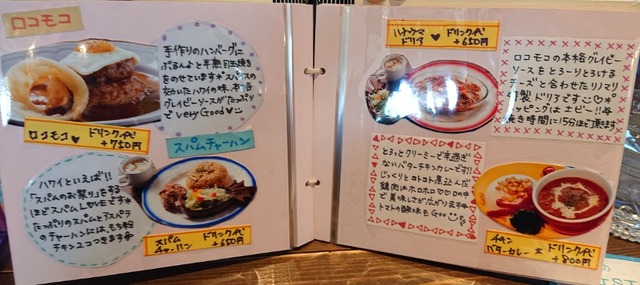 ロコモコ
手作りのハンバーグに
ぷるんよと半熟目玉焼き
をのせています* スパイスの
効いたハワイの味、本格
グレイビーソースがたっぷり
でvery Good♡
ロコモコ♥ ドリンク代
+750円
スパムチャーハン
ハワイといえば!!
「スパムのお祭り」をする
ほどスパムしせいです*
たっぷりのスパムとアスパラ
のチャーハンには、もち粉
チキン2コつきます
スパム
チャーハン
ドリンク代
+650円
ハナウマ♥
ドリア
ドリンク代
+650円
ロコモコの本格グレイビー
ソースをとろ〜りとろける
チーズと合わせたリマリマ
特製ドリアです♡*
トッピングはエビ
焼き時間に15分ほど頂きます
とろっとクリーミーで辛過ぎ
ないバターチキンカレーです!!
じっくりとコトコト煮込んだ
鶏肉はホロホロ♡♡口の中
で美味しさが広がります*
トマトの酸味もGood
チキン
バターカレー
ドリンク代
+800円